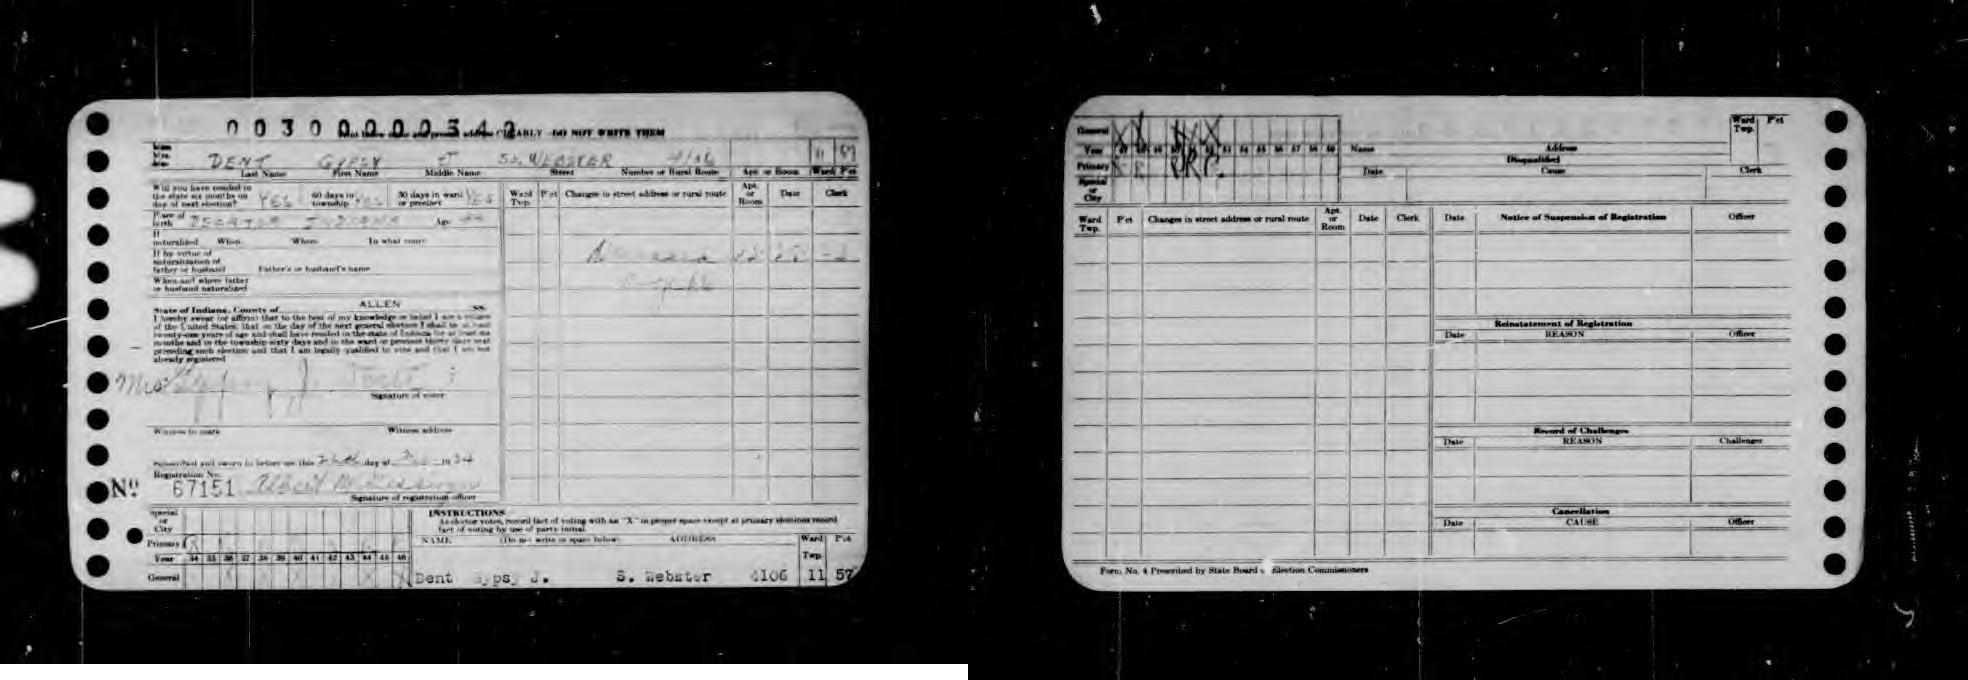 0030000034
CLEARLY DO NOT WRITE THEM
DENT GYPSY J SO. WEBSTER 4106 11 57
Last Name First Name Middle Name Street Number or Rural Route Apt. or Room Ward P'ct
Will you have resided in the state six months on day of next election? YES 60 days in township YES 30 days in ward or precinct YES
Place of birth DECATUR INDIANA Age
If naturalized When Where In what court
If by virtue of naturalization of father or husband Father's or husband's name
When and where father or husband naturalized
State of Indiana, County of ALLEN SS.
I hereby swear (or affirm) that to the best of my knowledge or belief I am a citizen
of the United States; that on the day of the next general election I shall be at least
twenty-one years of age and shall have resided in the state of Indiana for at least six
months and in the township sixty days and in the ward or precinct thirty days next
preceding such election and that I am legally qualified to vote and that I am not
already registered
Mrs Gypsy J. Dent
Signature of voter
Witness to mark Witness address
Subscribed and sworn to before me this day of 1934
Registration No.
No 67151 Albert
Signature of registration officer
Ward Twp. P'ct Changes in street address or rural route Apt. or Room Date Clerk
Special or City
Primary R
Year 34 35 36 37 38 39 40 41 42 43 44 45 46
General X X X X
INSTRUCTIONS
As elector votes, record fact of voting with an "X" in proper space except at primary elections record
fact of voting by use of party initial.
NAME (Do not write in space below) ADDRESS Ward Twp. P'ct
Dent Gypsy J. S. Webster 4106 11 57
General X X X X
Year 47 48 49 50 51 52 53 54 55 56 57 58 59
Primary R R
Special or City
Name Address Ward Twp. P'ct
Disqualified
Date Cause Clerk
Ward Twp. P'ct Changes in street address or rural route Apt. or Room Date Clerk
Date Notice of Suspension of Registration Officer
Reinstatement of Registration
Date REASON Officer
Record of Challenges
Date REASON Challenger
Cancellation
Date CAUSE Officer
Form No. 4 Prescribed by State Board of Election Commissioners